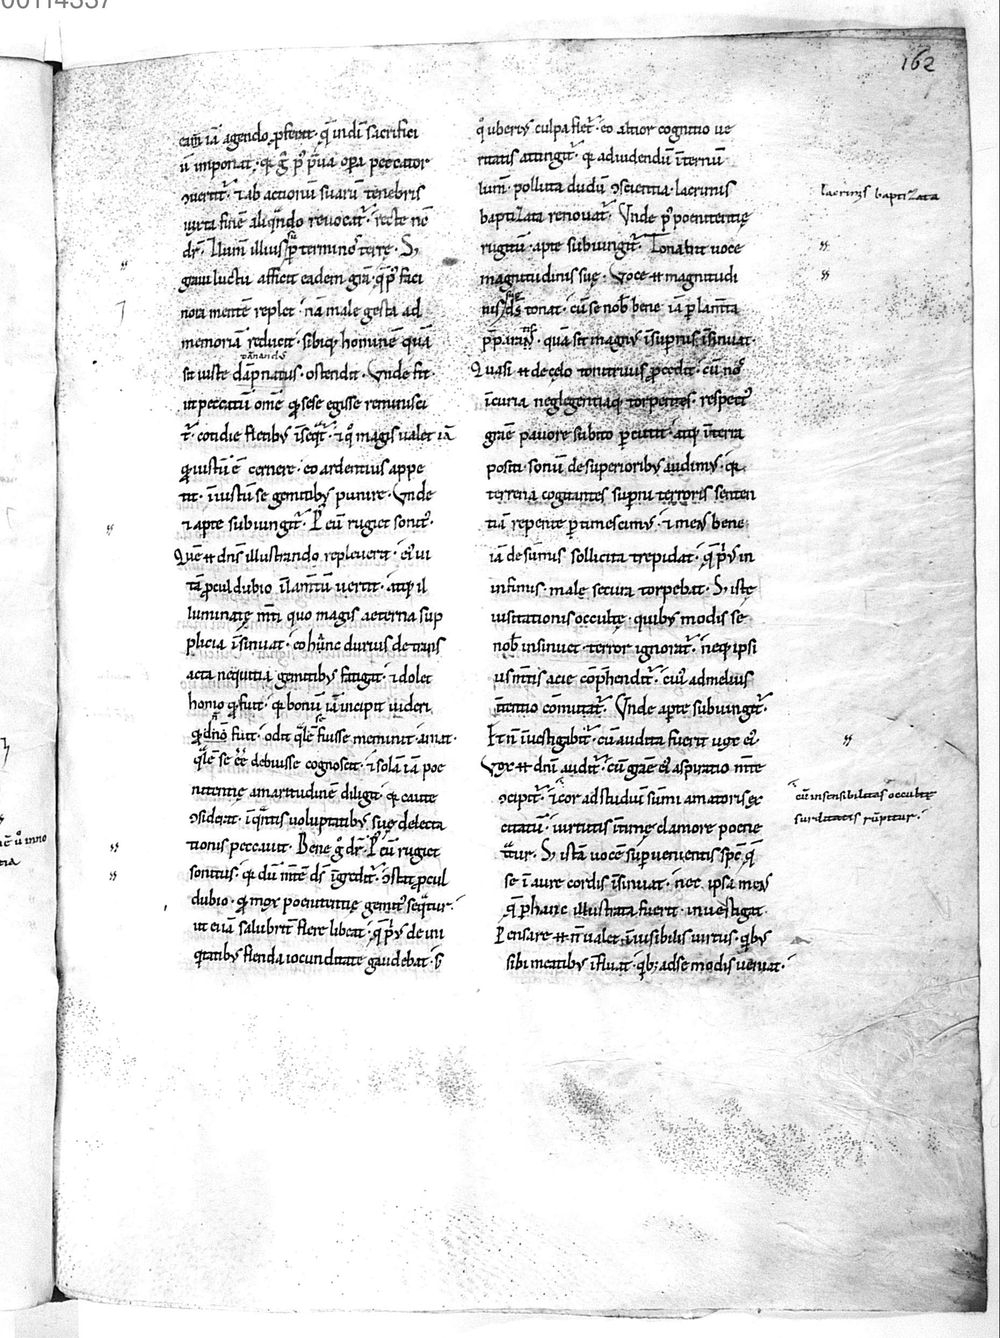 00114337
162
eam̄ iā agendo ꝓferat· q̄ uindī sacrifici
ū imponat· qꝫ ḡ p̄ p̄ua oꝑa peccator
ꝯuertit̄· ⁊ab actionū suarū tenebris
iuxta finē aliqn̄do reuocat̄· recte nc̄
dr̄· Llum̄ illius suꝑ terminos terre· S;
graui luctu afficit eadem gr̄a· q̄ p̄ faci
nora mentē replet· nā male gesta ad
memoriā reducit· sibiqꝫ hominē quā
sit iuste dāpnatus· ostendit· Vnde fit
dānandꝰ
ut peccatū om̄e qꝫ sese egisse reminisci
t̄· cotidie fletibꝰ īseqt̄· ⁊ qͦ magis ualet iā
qꝫ iustū ē cernere· eo ardentius appe
tit· iniustū se gemitibꝰ punire· Vnde
⁊ apte subiungit̄· P̄ eū rugiet sonitꝰ·
Quē ꝑ dn̄s illustrando repleuerit· eiꝰ ui
tā ꝓcul dubio ī lam̄tū uertit· atqꝫ il
luminatę m̄ti quo magis aeterna sup
plicia īsinuat· eo hūnc durius de trans
acta nequitia gemitibꝰ fatigat· ⁊ dolet
homo qꝫ fuit· qꝫ bonū iā incipit uideri
qꝫ dn̄o fuit· odit qͣlē se fuisse meminit· amat·
qͣlē se ēē debuisse cognoscit· ⁊ solā iā poe
nitentię amaritudinē diligit· qꝫ caute
ꝯsiderat· ī qntis uoluptatibꝰ suę delecta
tionis peccauit· Bene ḡ dr̄· P̄ eū rugiet
sonitus· qꝫ dū m̄tē ds̄ īgredit̄· ꝯstat ꝓcul
dubio· qꝫ mox poenitentię gemitꝰ seqͣtur·
ut eūā salubrit̄ flere libeat· q̄ pͥꝰ de ini
qͥtatibꝰ flenda iocunditate gaudebat· s;
qͦ uberiꝰ culpa flet̄· eo altior cognitio ue
ritatis attingit̄· qꝫ ad uidendū īternū
lum̄· polluta dudū ꝯscientia· lacrimis
baptizata renouat̄· Vnde p̄ poenitentię
rugitū· apte subiungit̄· Tonabit uoce
magnitudinis suę· Voce ꝑ magnitudi
nis suę ds̄ tonat· cū se nob̄ bene iā p̄
quā sit magnꝰ ī supnis· īsinuat·
Quasi ꝑ de cęlo tonitruus ꝓcedit· cū nos̄
īcuria neglegentiaqꝫ torpentes· respectꝰ
gr̄ę pauore subito ꝑcutit· atqꝫ īterra
positi· sonū de superioribꝰ audimꝰ· qꝫ
terrena cogitantes supni terroris senten
tiā repente ꝑtimescimꝰ· ⁊ mens bene
iā de sūmis sollicita trepidat· q̄ pͥꝰ in
infimis· male secura torpebat· S; istę
uisitationis occultę· quibꝰ modis se
nob̄ insinuet· terror ignorat̄· neqꝫ ipsi
us m̄tis acie cōp̄hendit̄· cuiꝰ ad melius
ītentio cōmutat̄· Vnde apte subiungit̄·
Et n̄ īuestigabit̄· cū audita fuerit uox eiꝰ
Vox ꝑ dn̄i audit̄· cū gr̄ę eiꝰ aspiratio m̄te
ꝯcipit̄·
citatū· uirtutis ītimę clamore poene
tͣtur· S; istā uocē supuenientis spc̄· q̄
se ī aure cordis īsinuat· nec ipsa mens
q̄ ꝑ hanc illustrata fuerit· inuestigat·
Pensare ꝑ n̄ ualet· inuisibilis uirtus· qͥbꝰ
sibi meatibꝰ īfluat· qͥbꝫ ad se modis ueniat·
lacrimis baptizata
cū insensibilitas occultę
surditatis rūpitur·